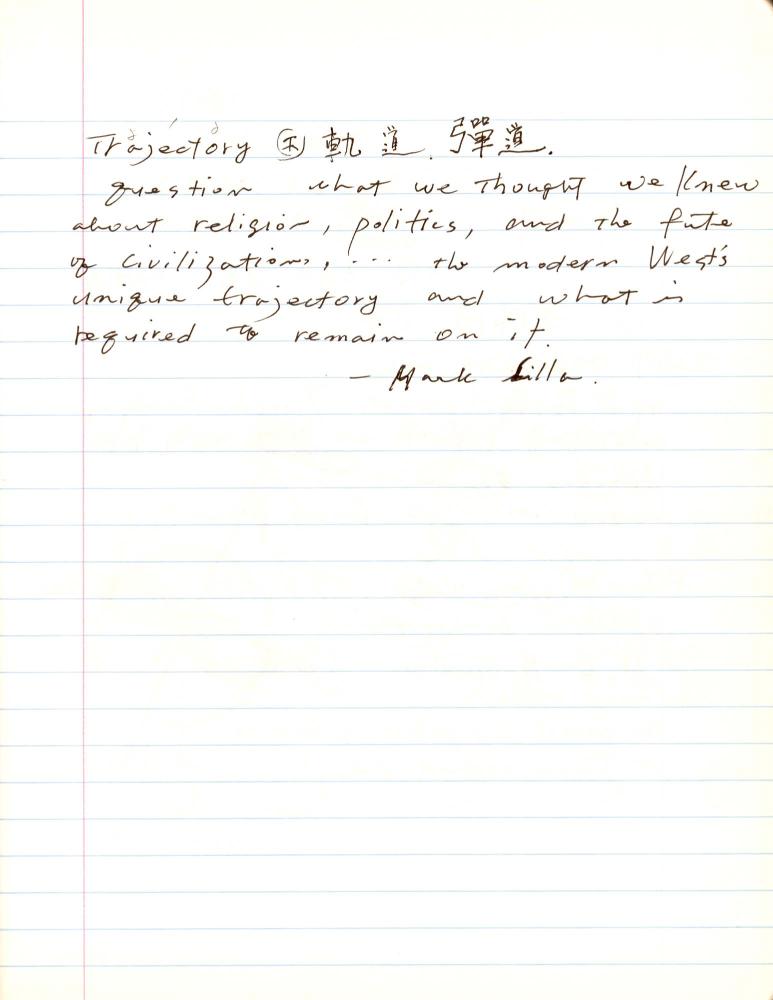 Trajectory 軌道. 彈道.
question what we thought we knew
about religion, politics, and the fate
of civilizations, ... the modern West's
unique trajectory and what is
required to remain on it.
— Mark Lilla.